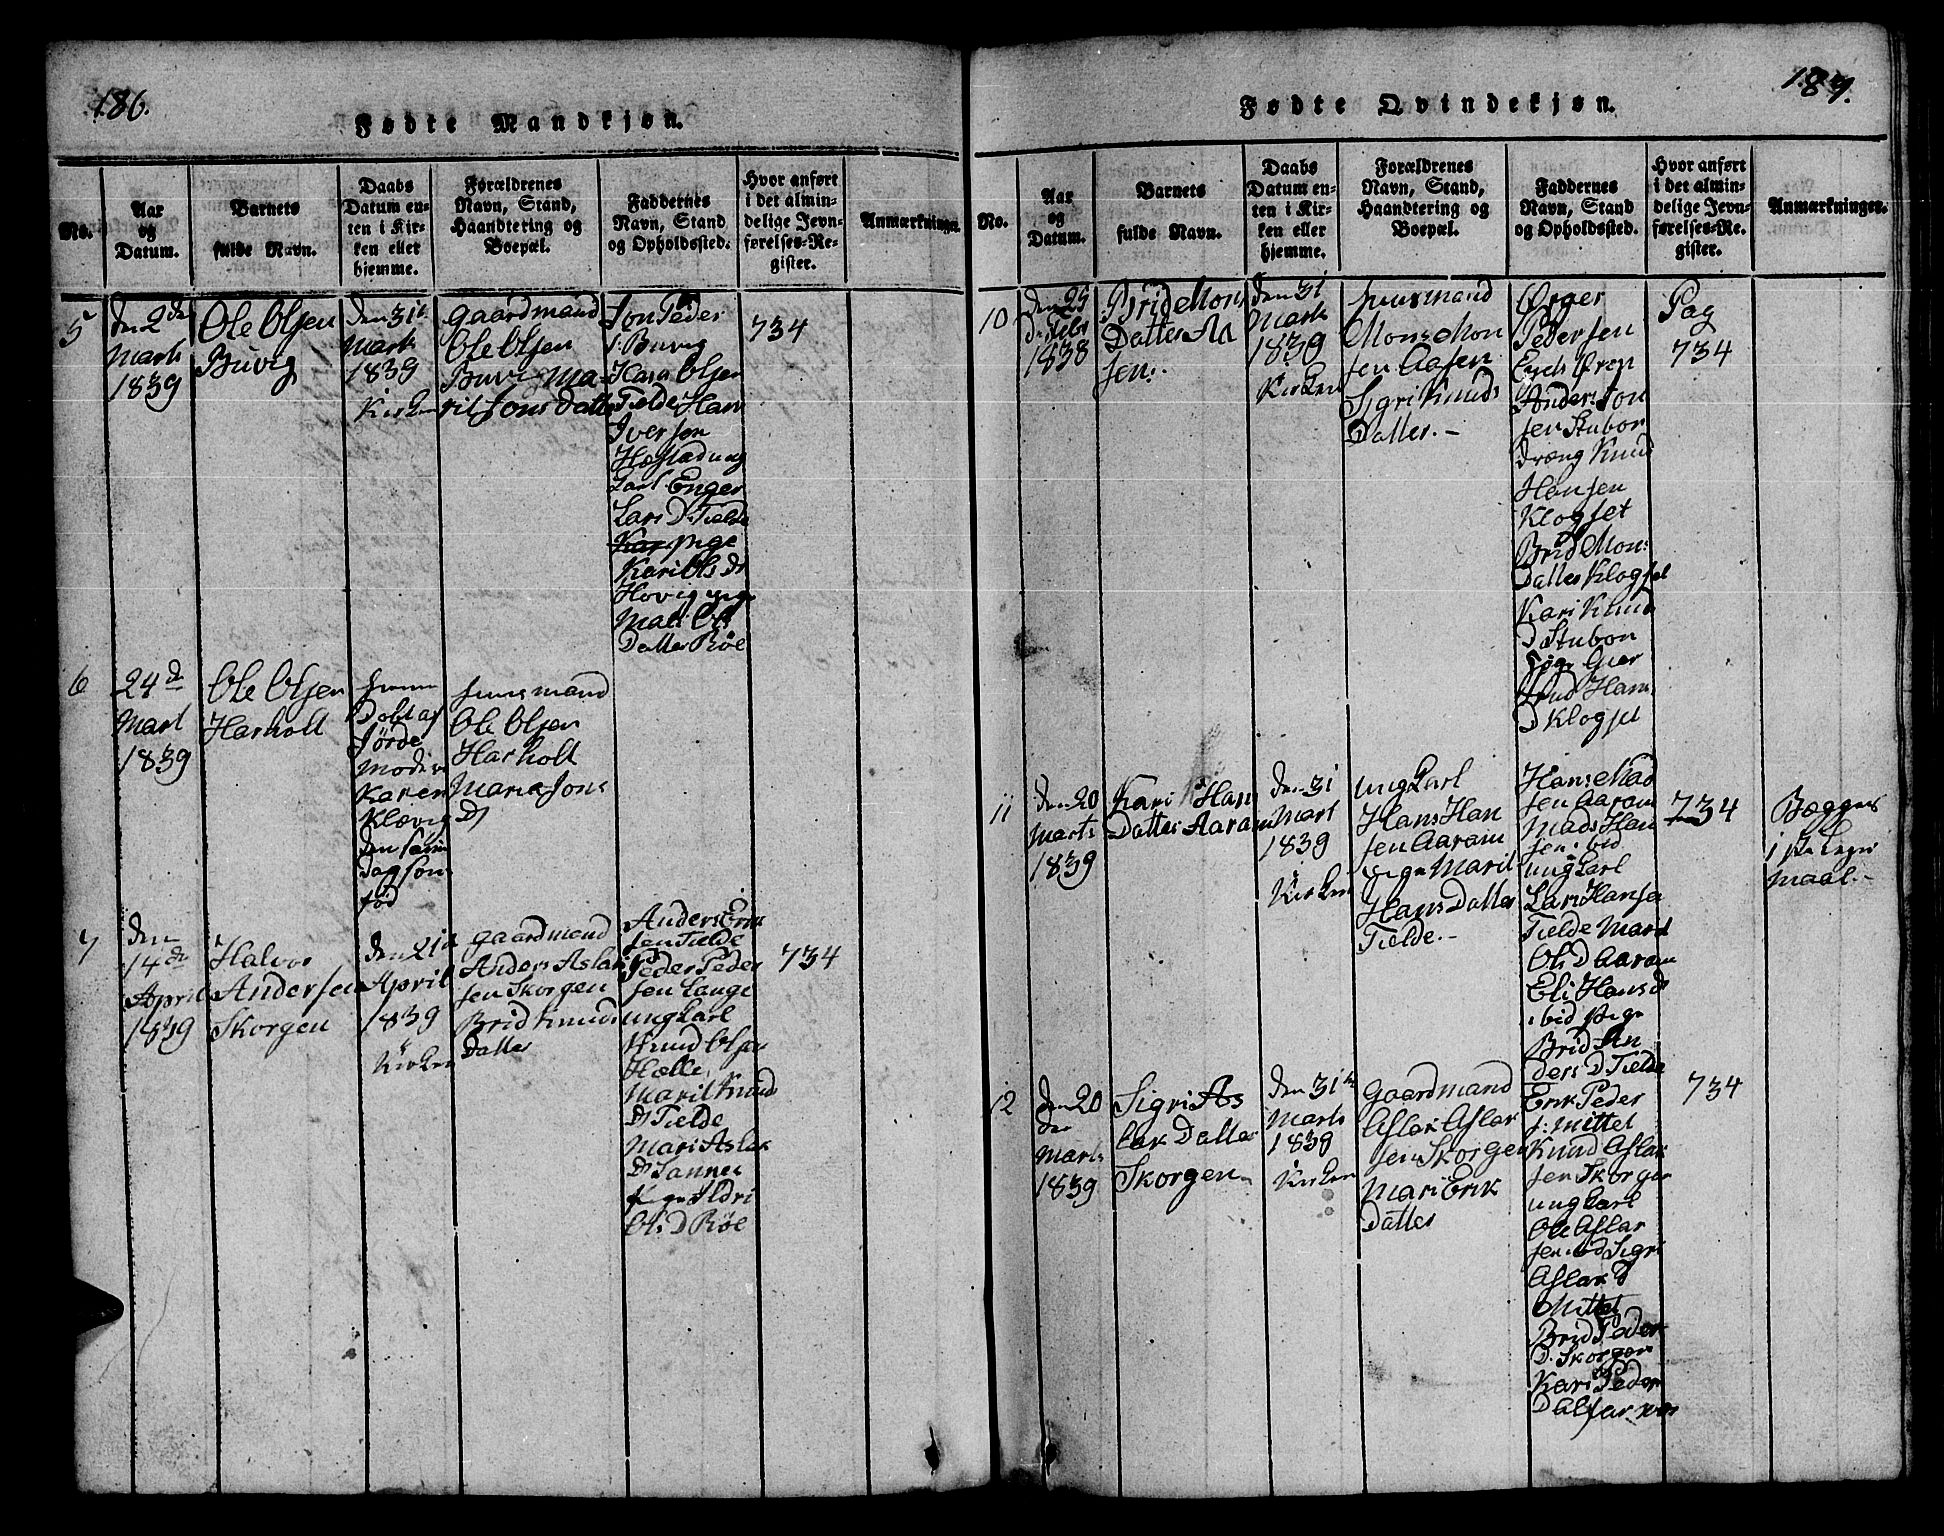 186.
Fødte Mandkjøn.
No.
Aar
og
Datum.
Barnets
fulde Navn.
Daabs
Datum en-
ten i Kir-
ken eller
hjemme.
Forældrenes
Navn, Stand,
Haandtering og
Boepæl.
Faddernes
Navn, Stand
og Opholdssted.
Hvor anført
i det almin-
delige Jevn-
førelses-Re-
gister.
Anmærkninger.
5
den 2den
Marts
1839
Ole Olsen
Buvig
den 31te
Marts
1839
Kirken
gaardmand
Ole Olsen
Buvi Ma-
rit Jons Datter
Jon Peder
s: Buvig
Olsen
Tielde Hans
Iversen
Karl Enger
Lars D. Tielde
Kar pige
Kari Ols Dr
Hovig pige
Mari Ols
Datter Røe
734
6
24de
Mart
1839
Ole Olsen
Harholt
Døbt af
Jorde
modir
Karen
Klævig
den samme
Dag som
fød
huusmand
Ole Olsen
Harholt
Maria Jons
Dr
7
den
14de
April
1839
Halvor
Andersen
Skorgen
den 21de
April
1839
Kirken
gaardmand
Anders Aslak
sen Skorgen
Brid Knuds
Datter
Anders Erik
sen Tielde
Peder Peder
sen Lange
ung Karl
Knud Olsen
Hælle
Marit Knud
Dr Tielde
Mari Aslak
Dr Sanner
pige Ildri
Ols D Røe
734
187.
Fødte Qvindekjøn.
No.
Aar
og
Datum.
Barnets
fulde Navn.
Daabs
Datum en-
ten i Kir-
ken eller
hjemme.
Forældrenes
Navn, Stand,
Haandtering og
Boepæl.
Faddernes
Navn, Stand
og Opholdssted.
Hvor anført
i det almin-
delige Jevn-
førelses-Re-
gister.
Anmærkninger.
10
den 25
1838
Brid Mons
Datter Aa
sen.
den 31
Marts
1839
Kirken
huusmand
Mons Mon
sen Aasen
Sigri Knuds
Datter. –
Pedersen
Anders Jon
sen Stubon
dræng Knud
Hansen
Klogset
Brid Mon:
Datter Klogset
Kari Knud
D Stubon
D Klogset
Pag
734
11
den 20
Marts
1839
Kari Hans
Datter Aaram
den 31
Mart
1839
Kirken
ung Karl
Hans Han
sen Aaram
pige Marit
Hans Datter
Tielde. –
Hans Mad
sen Aaram
Mads Han
sen ibid
ung Karl
Lars Hansen
Tielde Marit
Ols D Aaram
Eli Hans D
ibid pige
Brid An
ders D Tielde
734
Begges
1ste Leger
maal. –
12
den 20
der
Marts
1839
Sigri As
lak Datter
Skorgen
den 31te
Marts
1839
Kirken
gaardmand
Aslak Aslak
sen Skorgen
Mari Erik
Datter
Erik Peder
s: Mittet
Knud Aslak
sen Skorgen
ung Karl
Ole Aslak
sen ibid Sigri
Aslak D
Mittet
Brid Peder
D. Skorgen
Kari Peder
734